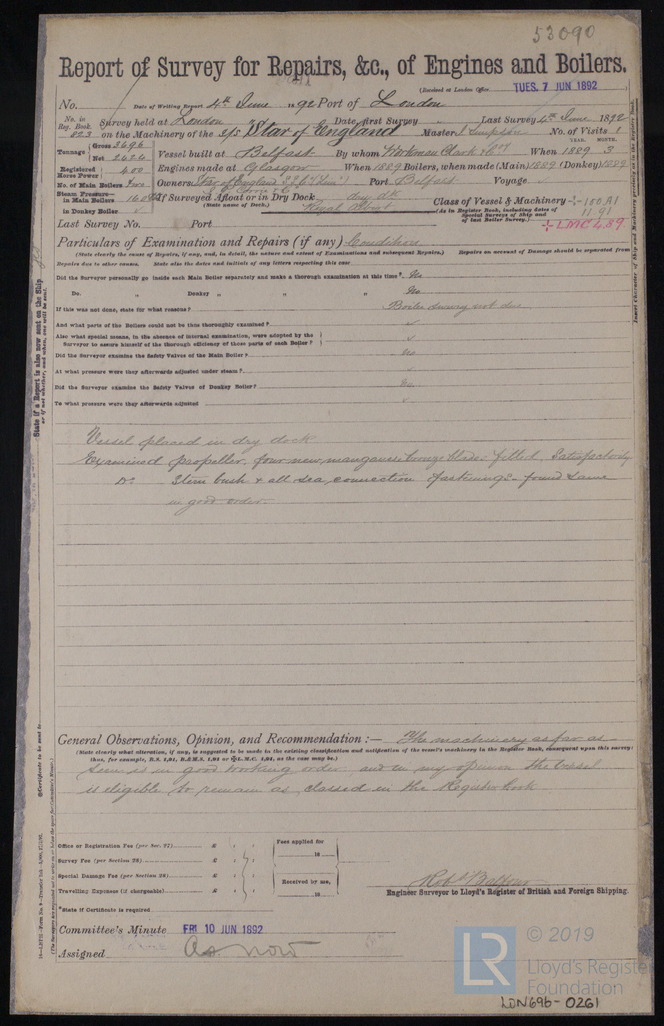 53090
Report of Survey for Repairs, &c., of Engines and Boilers.
(Received at London Office TUES. 7 JUN 1892
No. Date of Writing Report 4th June 1892 Port of London
No. in Reg. Book. 823 Survey held at London Date, first Survey Last Survey 4th June 1892
on the Machinery of the S/S "Star of England" Master Simpson No. of Visits 1
Tonnage Gross 3696 Net 2424
Vessel built at Belfast By whom Workman Clark & Co When 1889 3
Registered Horse Power 400 Engines made at Glasgow When 1889 Boilers, when made (Main) 1889 (Donkey) 1889
No. of Main Boilers Two Owners Star of England Port Belfast Voyage
Steam Pressure— in Main Boilers 160 If Surveyed Afloat or in Dry Dock dry dk Class of Vessel & Machinery 100 A1
in Donkey Boiler (State name of Dock.) Royal Albert (As in Register Book, including dates of Special Surveys of Ship and of last Boiler Survey.) 11 91
Last Survey No. Port + LMC 4,89
Particulars of Examination and Repairs (if any) Condition
(State clearly the cause of Repairs, if any, and, in detail, the nature and extent of Examinations and subsequent Repairs.) Repairs on account of Damage should be separated from
Repairs due to other causes. State also the dates and initials of any letters respecting this case
Did the Surveyor personally go inside each Main Boiler separately and make a thorough examination at this time? No
Do. „ Donkey „ „ „ No
If this was not done, state for what reasons? Boiler survey not due
And what parts of the Boilers could not be thus thoroughly examined? ✓
Also what special means, in the absence of internal examination, were adopted by the Surveyor to assure himself of the thorough efficiency of those parts of each Boiler? ✓
Did the Surveyor examine the Safety Valves of the Main Boiler? No
At what pressure were they afterwards adjusted under steam?
Did the Surveyor examine the Safety Valves of Donkey Boiler? No
To what pressure were they afterwards adjusted ✓
Vessel placed in dry dock
Examined propeller, four new manganese bronze blades fitted. Satisfactory
Do Stern bush & all sea connection & fastenings - found same
in good order.
General Observations, Opinion, and Recommendation :— The machinery as far as
(State clearly what alteration, if any, is suggested to be made in the existing classification and notification of the vessel's machinery in the Register Book, consequent upon this survey:
thus, for example, B.S. 1,91, B.&M.S. 1,91 or L.M.C. 1,91, as the case may be.)
seen is in good working order and in my opinion the vessel
is eligible to remain as classed in the Register book
Office or Registration Fee (per Sec. 27) £
Survey Fee (per Section 28) £
Special Damage Fee (per Section 28) £
Travelling Expenses (if chargeable) £
Fees applied for 18
Received by me, 18
*State if Certificate is required
Robt Balfour
Engineer Surveyor to Lloyd's Register of British and Foreign Shipping.
Committee's Minute FRI. 10 JUN 1892
Assigned As now
State if a Report is also now sent on the Ship
or if not whether, and when, one will be sent.
© 2019
LR
Lloyd's Register
Foundation
LDN696-0261